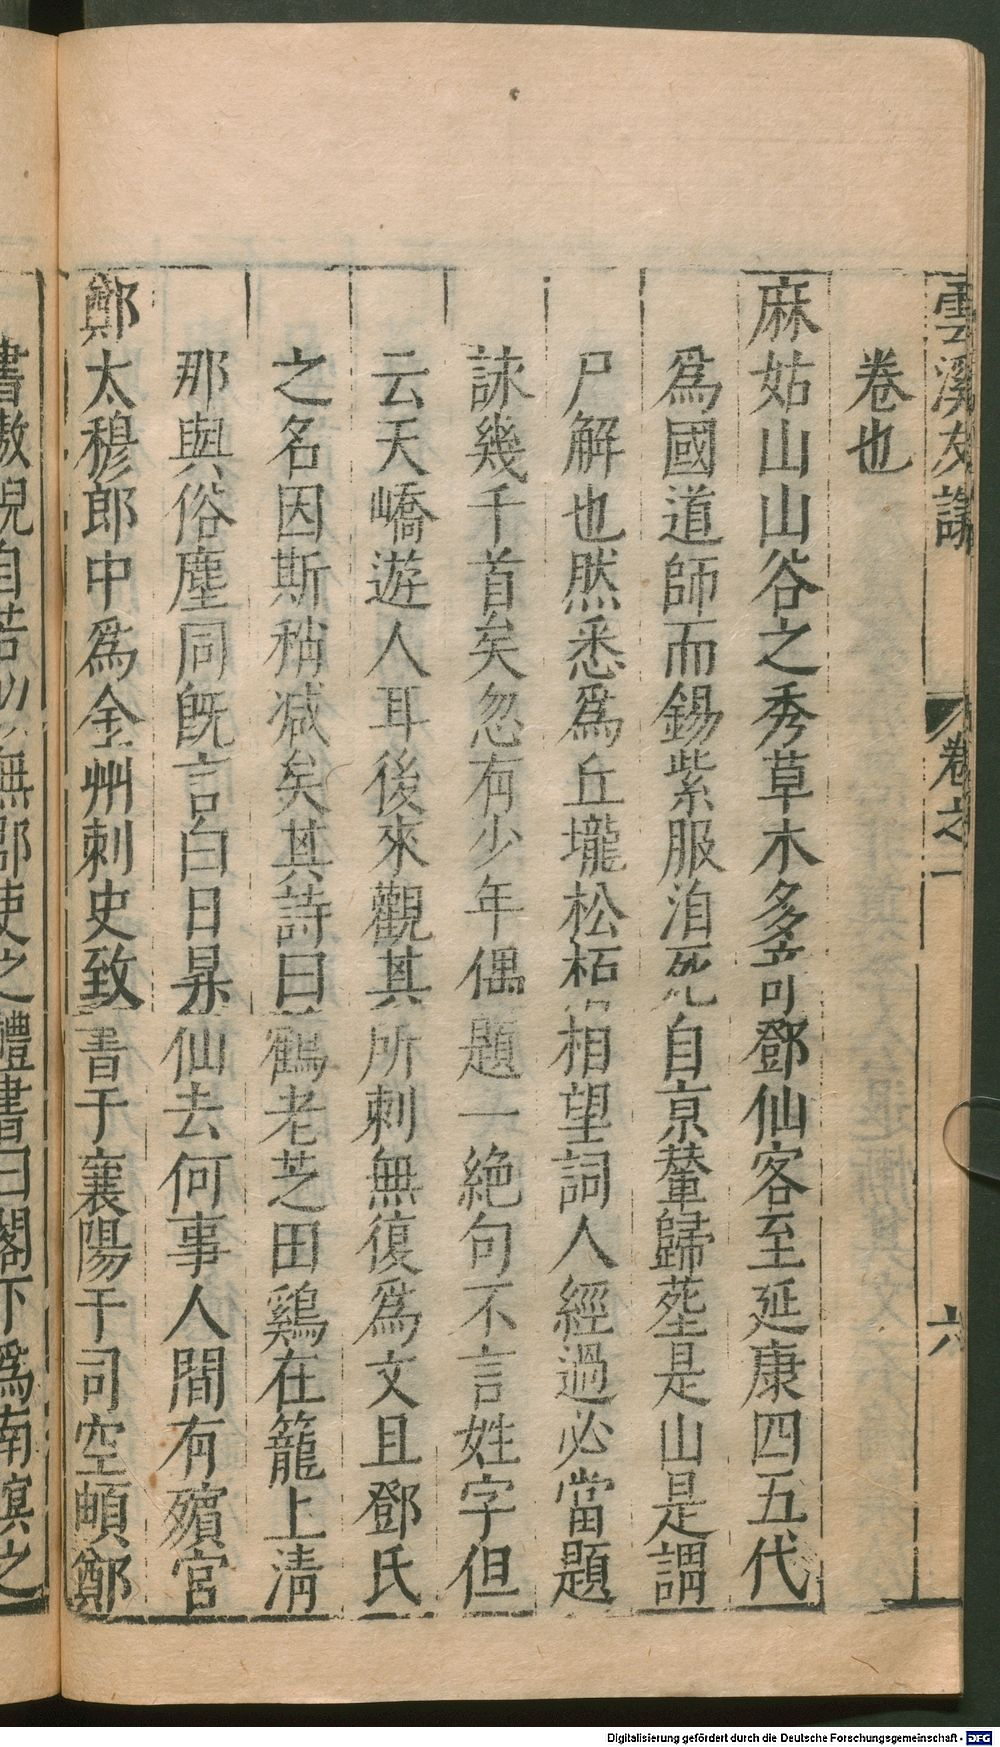 雲溪友議 卷之一 六
卷也
麻姑山山谷之秀草木多奇鄧仙客至延康四五代
爲國道師而錫紫服洎死自京輦歸葬是山是謂
尸解也然悉爲丘壠松栢相望詞人經過必當題
詠幾千首矣忽有少年偶題一絶句不言姓字但
云天嶠遊人耳後來觀其所刺無復爲文且鄧氏
之名因斯稍減矣其詩曰鶴老芝田鷄在籠上清
那與俗塵同旣言白日昇仙去何事人間有殯宮
鄭太穆郎中爲金州刺史致書于襄陽于司空頔鄭
書傲睨自若似無郡使之禮書曰閣下爲南溟之
Digitalisierung gefördert durch die Deutsche Forschungsgemeinschaft - DFG